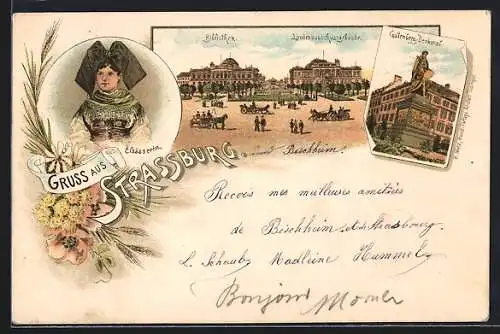 Bibliothek.
Landesausschussgebäude.
Gutenberg-Denkmal.
Elsässerin.
GRUSS AUS
STRASSBURG
Bischheim.
Recois mes meilleures amitiés
de Bischheim Strasbourg.
L. Schaub Madleine Hummel
Bonjour